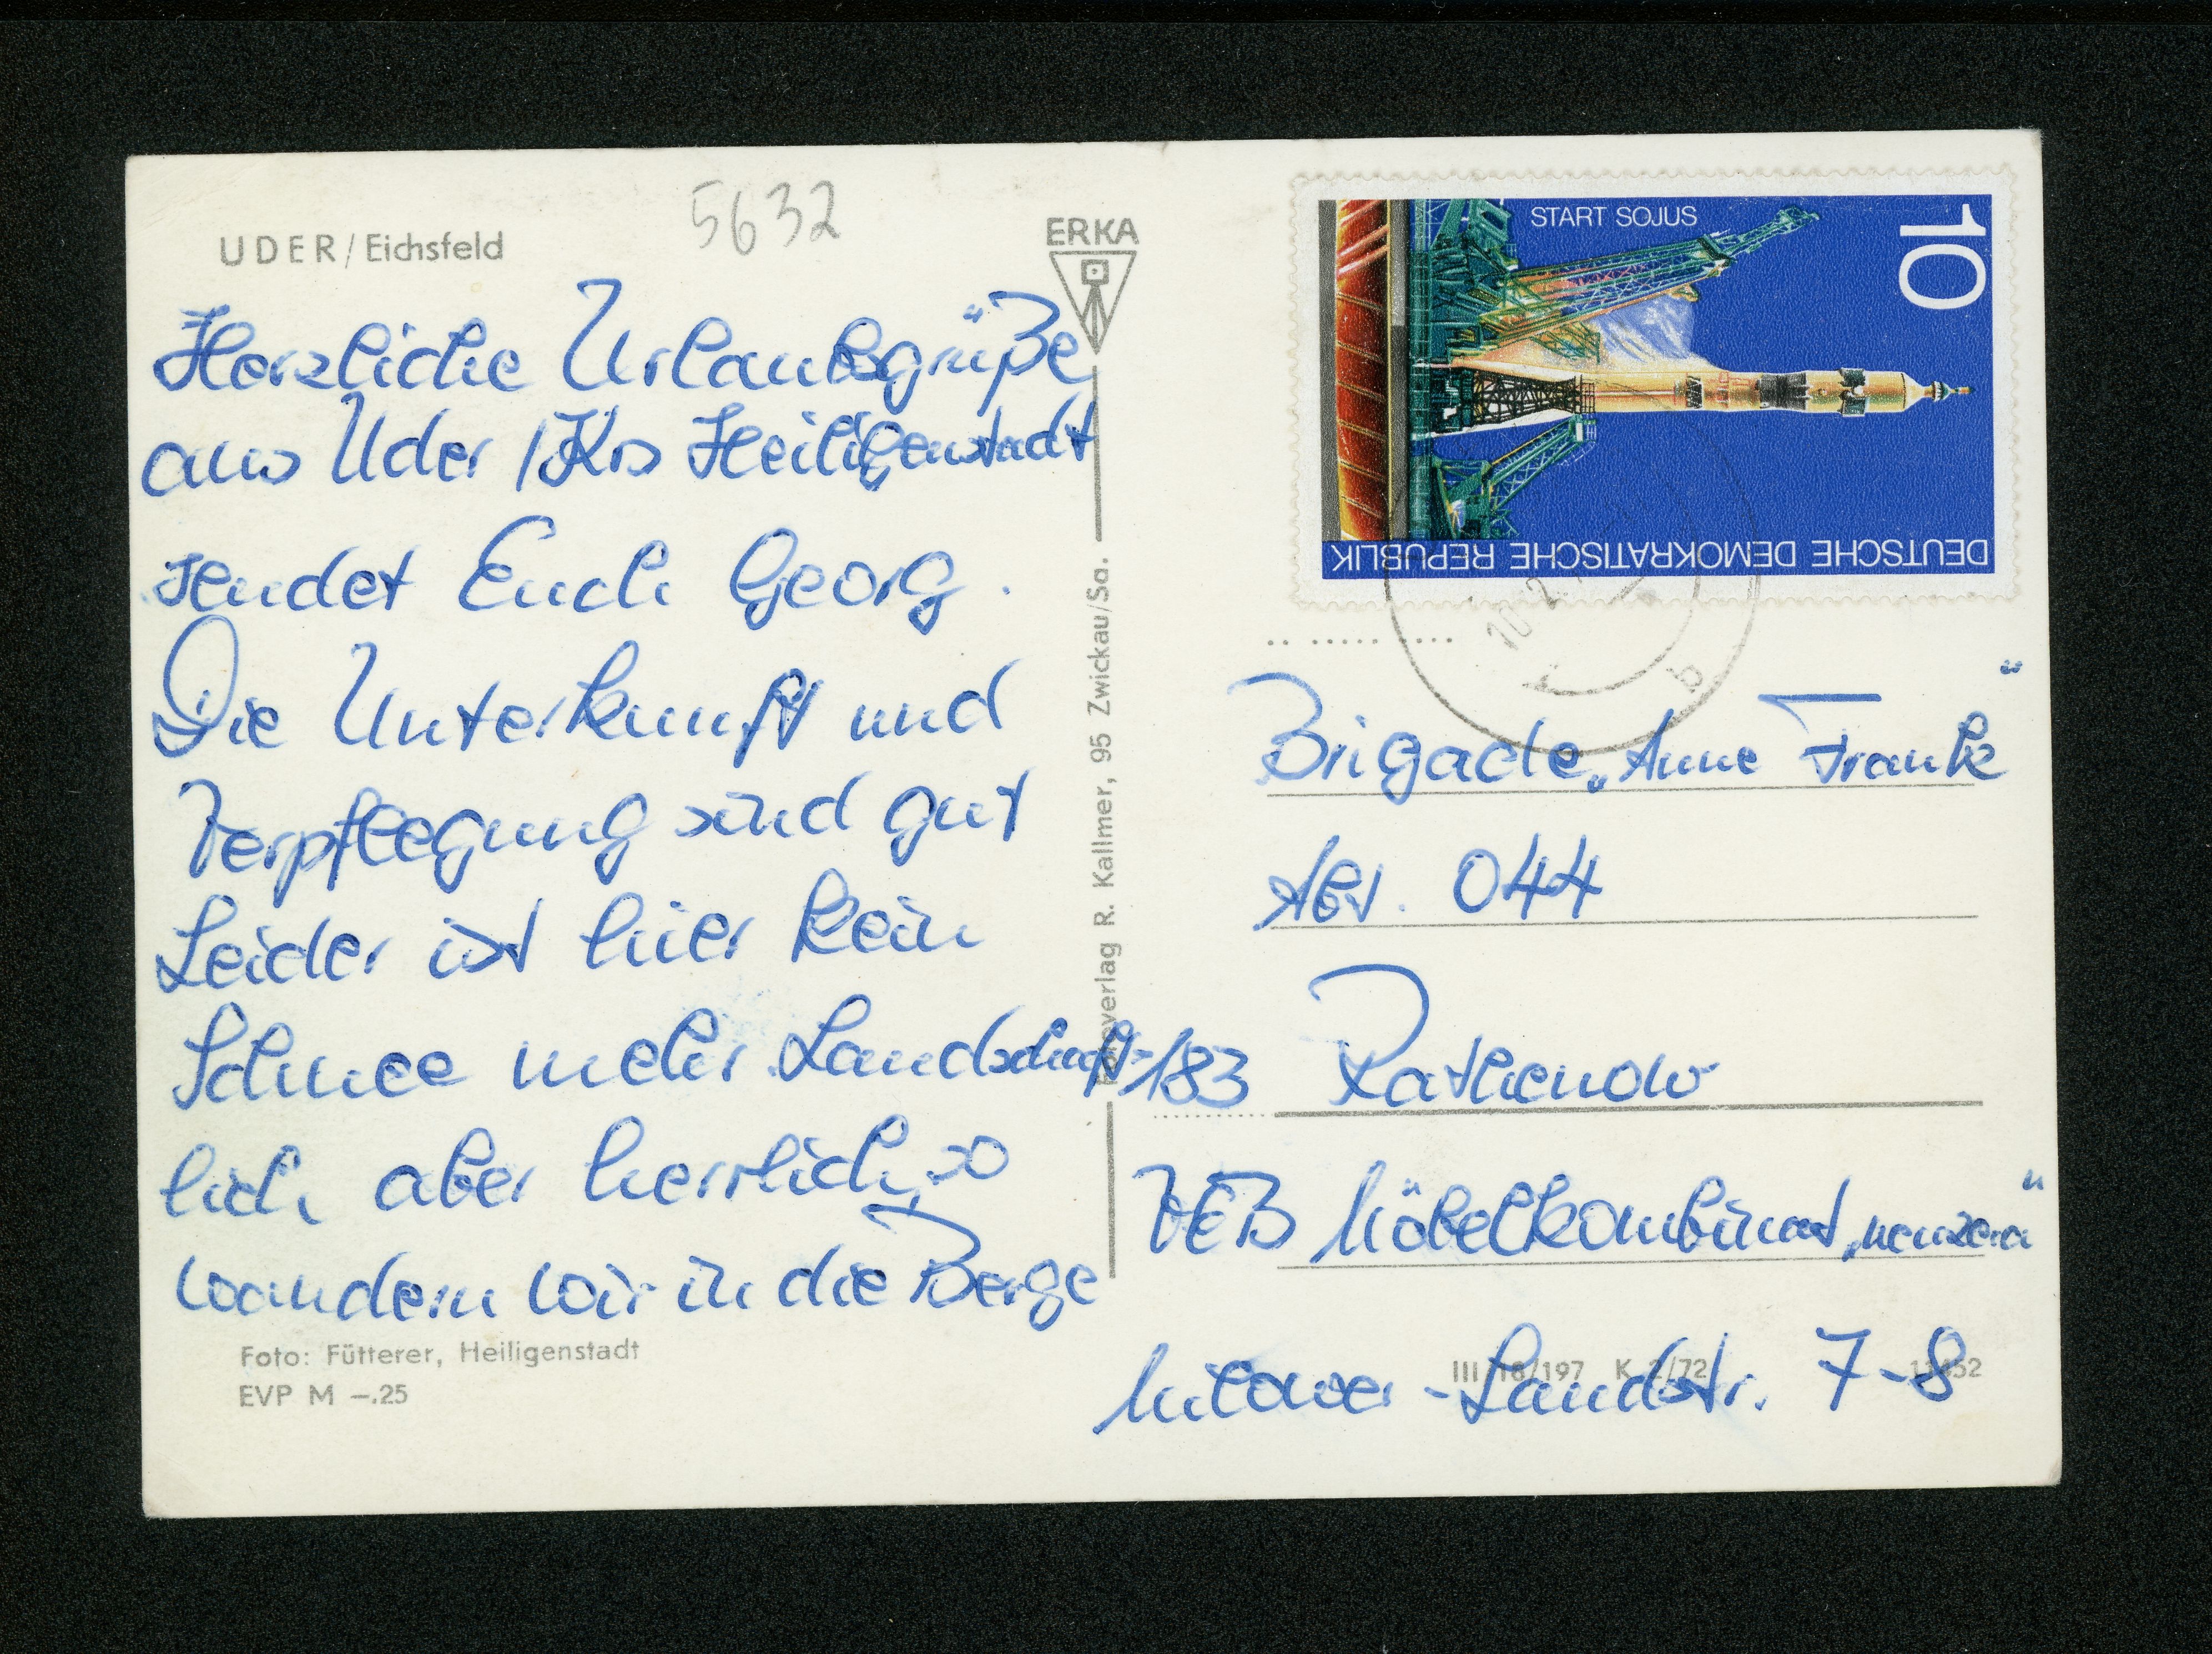 UDER/Eichsfeld
5632
ERKA
Herzliche Urlaubsgrüße
aus Uder / Krs Heiligenstadt
sendet Euch Georg.
Die Unterkunft und
Verpflegung sind gut
Leider ist hier kein
Schnee mehr. Landschaft-
lich aber herrlich, so
wandern wir in die Berge
Foto: Fütterer, Heiligenstadt
EVP M –.25
Fotoverlag R. Kallmer, 95 Zwickau/Sa.
START SOJUS
10
DEUTSCHE DEMOKRATISCHE REPUBLIK
b
Brigade „Anne Frank“
Abt. 044
183 Rathenow
VEB Möbelkombinat
Milower-Landstr. 7-8
III/18/197 K 2/72